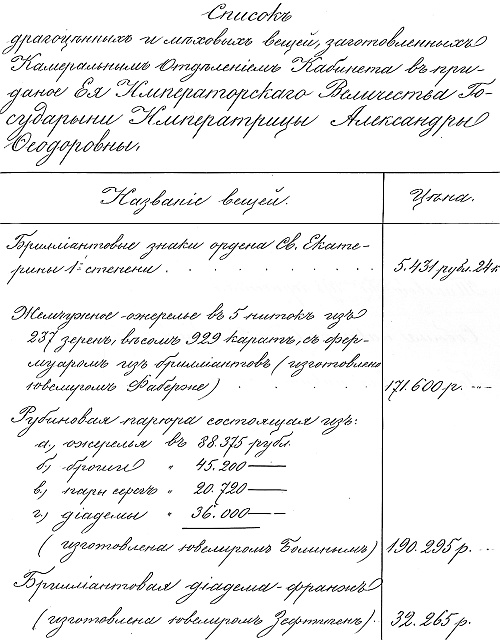 Списокъ
драгоцѣнныхъ и мѣховыхъ вещей, заготовленныхъ
Камеральнымъ Отдѣленіемъ Кабинета въ при-
даное Ея Императорскаго Величества Го-
сударыни Императрицы Александры
Ѳеодоровны.
Названіе вещей. Цѣна.
Брилліантовые знаки ордена Св. Екате-
рины 1й степени . . . . . . . . 5.431 рубл. 24 к
Жемчужное ожерелье въ 5 нитокъ изъ
237 зеренъ, вѣсомъ 929 каратъ, съ фер-
муаромъ изъ брилліантовъ (изготовлено
ювелиромъ Фаберже) . . . . . 171.600 р. --
Рубиновая парюра состоящая изъ:
а) ожерелья въ 88.375 рубл.
б) броши " 45.200 —
в) пары серегъ " 20.720 —
г) діадемы " 36.000 —
(изготовлена ювелиромъ Болинымъ) 190.295 р. --
Брилліантовая діадема-франжъ
(изготовлена ювелиромъ Зефтигенъ). 32.265 р.